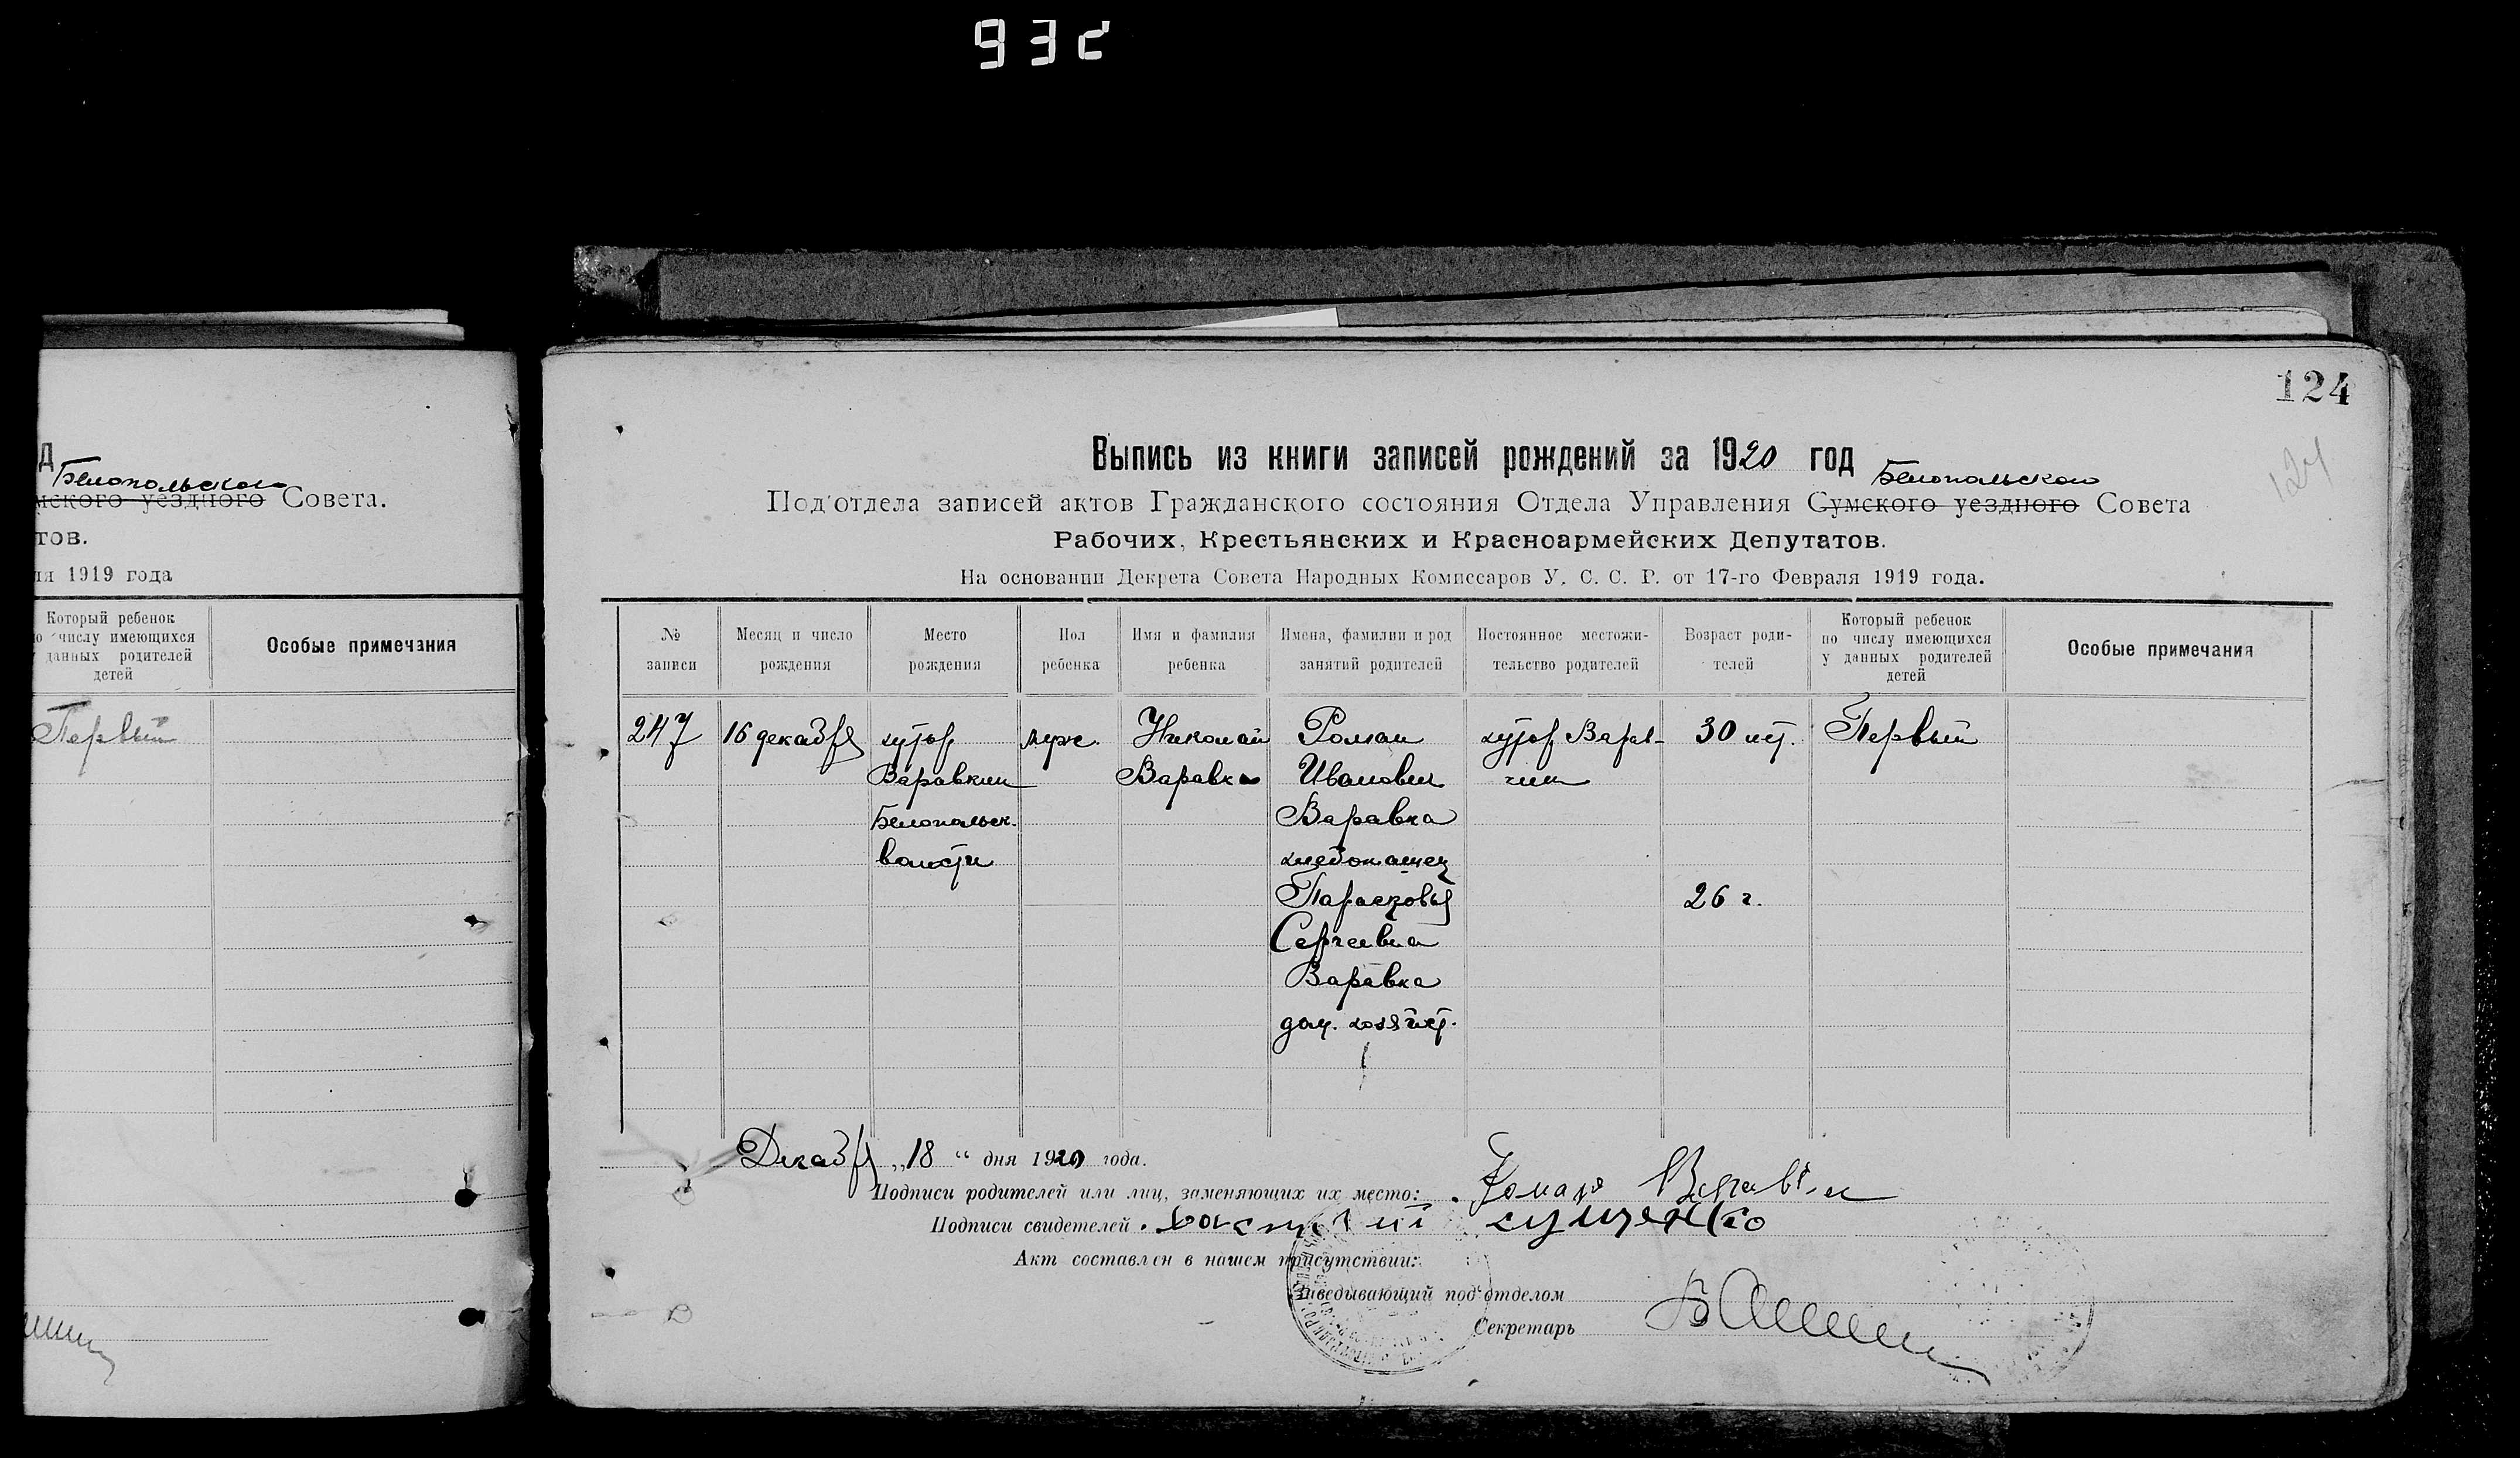 932
Д
Белопольского
мского уездного Совета.
тов.
ля 1919 года
Который ребенок
по числу имеющихся
данных родителей
детей
Особые примечания
Первый
124
124
Выпись из книги записей рождений за 1920 год
Белопольского
Под'отдела записей актов Гражданского состояния Отдела Управления Сумского уездного Совета
Рабочих, Крестьянских и Красноармейских Депутатов.
На основании Декрета Совета Народных Комиссаров У. С. С. Р. от 17-го Февраля 1919 года.
№
записи
Месяц и число
рождения
Место
рождения
Пол
ребенка
Имя и фамилия
ребенка
Имена, фамилии и род
занятий родителей
Постоянное местожи-
тельство родителей
Возраст роди-
телей
Который ребенок
по числу имеющихся
у данных родителей
детей
Особые примечания
247
16 декабря
хутор
Варавкин
Белопольск.
волости
муж.
Николай
Варавка
Роман
Иванович
Варавка
хлебопашец
Парасковья
Сергеевна
Варавка
дом. хозяйст.
хутор Варав-
кин
30 лет.
26 г.
Первый
Декабря „18“ дня 1920 года.
Подписи родителей или лиц, заменяющих их место: Варавка
Подписи свидетелей Сущенко
Акт составлен в нашем присутствии:
Заведывающий под'отделом
Секретарь